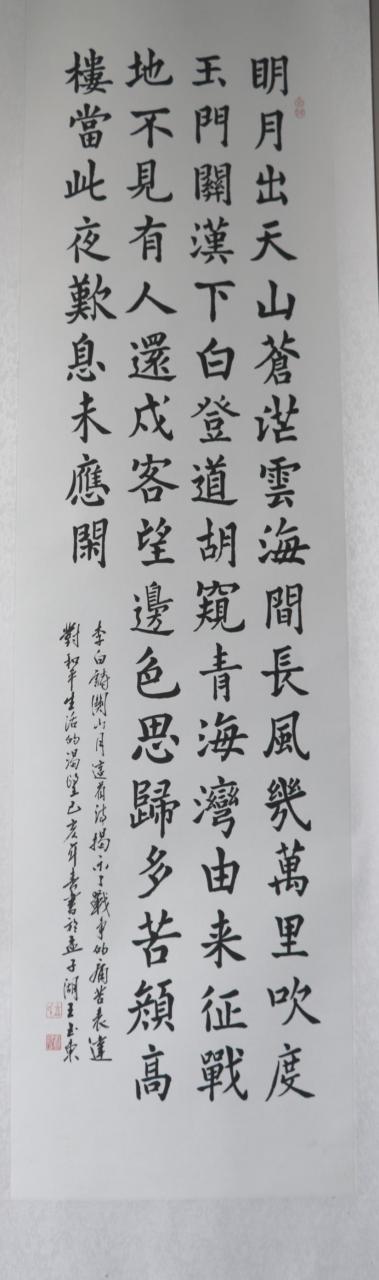 明月出天山蒼茫雲海間長風幾萬里吹度
玉門關漢下白登道胡窺青海灣由来征戰
地不見有人還戍客望邊色思歸多苦顏高
樓當此夜歎息未應閑
李白詩關山月這首詩揭示了戰争的痛苦表達
對和平生活的渴望己亥年春書於孟子湖王玉東